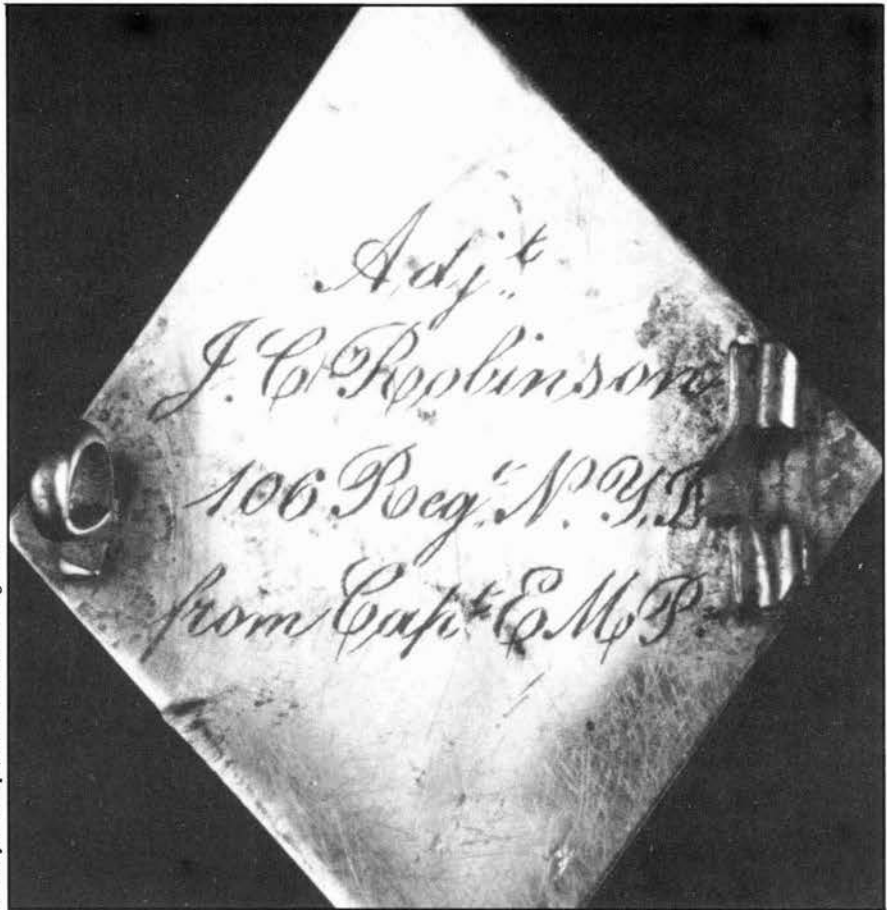 Adj.t
J. C. Robinson
106 Reg.t N. Y.
from Capt E M P